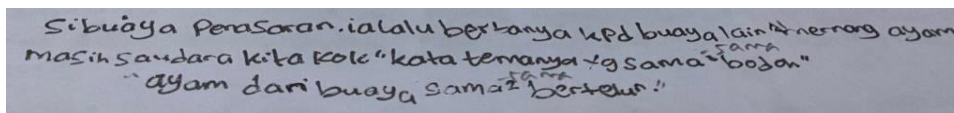 Sibuaya Penasaran. ia lalu bertanya kpd buaya lain "nemang ayam
masih saudara kita kok" kata temannya yg sama" bodoh"
"ayam dari buaya sama2 bertelur."